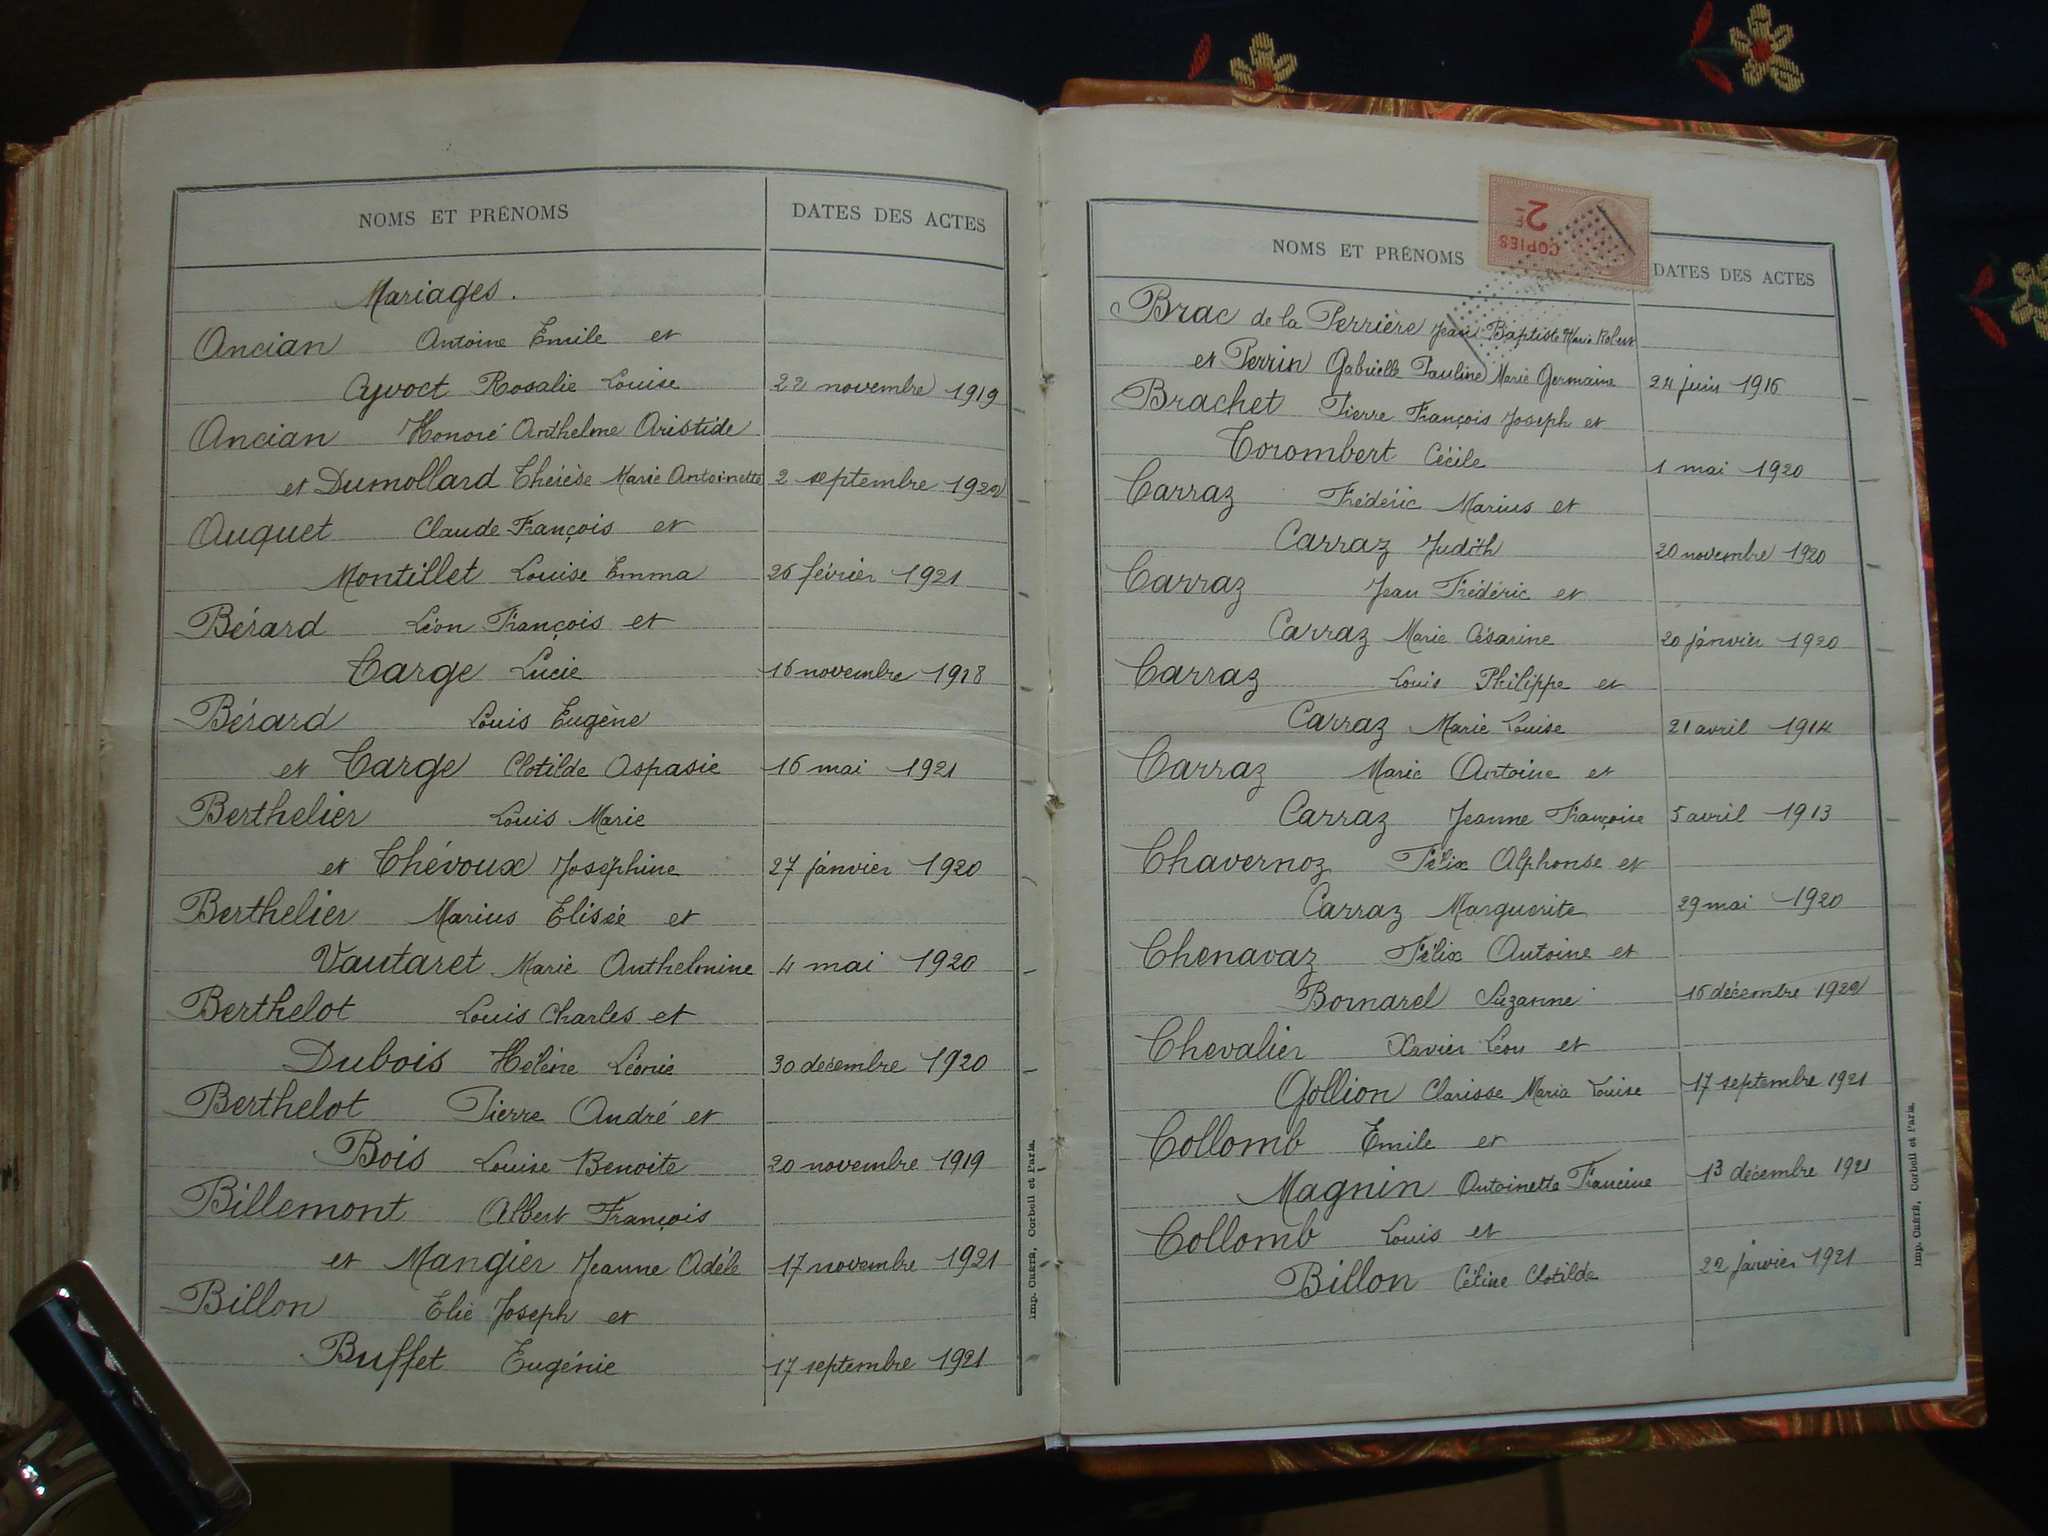 NOMS ET PRÉNOMS DATES DES ACTES
Mariages.
Ancian Antoine Emile et
Ayvoct Rosalie Louise 22 novembre 1919
Ancian Honoré Anthelme Aristide
et Dumollard Thérèse Marie Antoinette 2 septembre 1922
Auguet Claude François et
Montillet Louise Emma 26 février 1921
Bérard Léon François et
Carge Lucie 16 novembre 1918
Bérard Louis Eugène
et Carge Clotilde Aspasie 16 mai 1921
Berthelier Louis Marie
et Thévoux Joséphine 27 janvier 1920
Berthelier Marius Elisée et
Vautaret Marie Anthelmine 4 mai 1920
Berthelot Louis Charles et
Dubois Hélène Léonie 30 décembre 1920
Berthelot Pierre André et
Bois Louise Benoite 20 novembre 1919
Billemont Albert François
et Mangier Jeanne Adèle 17 novembre 1921
Billon Elie Joseph et
Buffet Eugénie 17 septembre 1921
Imp. CRÉTÉ, Corbeil et Paris.
COPIES
2F
NOMS ET PRÉNOMS DATES DES ACTES
Brac de la Perrière Jean Baptiste Marie Robert
et Perrin Gabrielle Pauline Marie Germaine 24 juin 1916
Brachet Pierre François Joseph et
Corombert Cécile 1 mai 1920
Carraz Frédéric Marius et
Carraz Judith 20 novembre 1920
Carraz Jean Frédéric et
Carraz Marie Césarine 20 janvier 1920
Carraz Louis Philippe et
Carraz Marie Louise 21 avril 1914
Carraz Marie Antoine et
Carraz Jeanne Françoise 5 avril 1913
Chavernoz Félix Alphonse et
Carraz Marguerite 29 mai 1920
Chenavaz Félix Antoine et
Bornarel Suzanne 16 décembre 1922
Chevalier Xavier Léon et
Gollion Clarisse Maria Louise 17 septembre 1921
Collomb Emile et
Magnin Antoinette Francine 13 décembre 1921
Collomb Louis et
Billon Céline Clotilde 22 janvier 1921
Imp. CRÉTÉ, Corbeil et Paris.